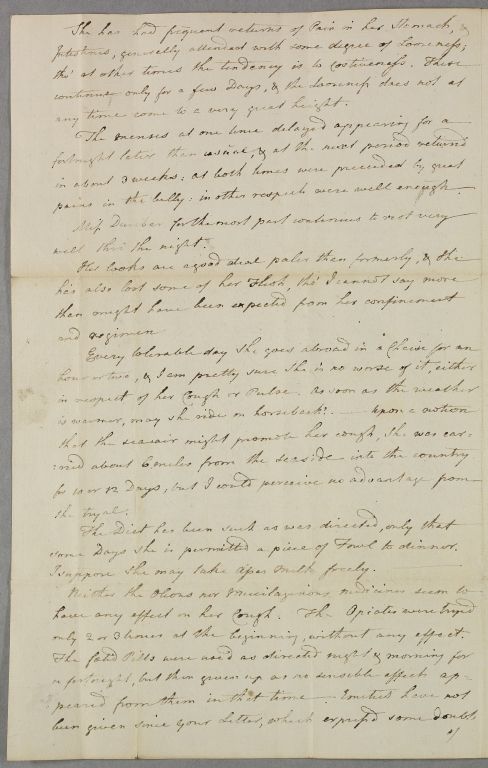 She has had frequent returns of Pain in her Stomach, &
Intestines, generally attended with some degree of Looseness;
tho' at other times the tendency is to Costiveness. These
continue only for a few Days, & the Looseness does not at
any time come to a very great height.
The menses at one time delayed appearing for a
fortnight later than usual, & at the next period returned
in about 3 weeks: at both times were preceded by great
pains in the belly: in other respects were well enough.
Miss Dunbar for the most part continues to rest very
well thro' the night.
Her looks are a good deal paler than formerly, & she
has also lost some of her Flesh, tho' I cannot say more
than might have been expected from her confinement
and regimen
Every tolerable day she goes abroad in a Chaise for an
hour or two, & I am pretty sure she is no worse of it, either
in respect of her Cough or Pulse. As soon as the weather
is warmer, may she ride on horseback? — Upon a notion
that the sea air might promote her cough, she was car-
:ried about 6 miles from the seaside into the country
for 10 or 12 Days, but I could perceive no advantage from
the tryal.
The Diet has been such as was directed, only that
some Days she is permitted a piece of Fowl to dinner.
I suppose she may take Asses Milk freely.
Neither the Oleous nor Mucilaginous medicines seem to
have any effect on her Cough. The Opiates were tryed
only 2 or 3 times at the beginning, without any effect.
The fœtid Pills were used as directed night & morning for
a fortnight, but then given up as no sensible effects ap-
peared from them in that time — Emetics have not
been given since your Letter, which express'd some doubts
of